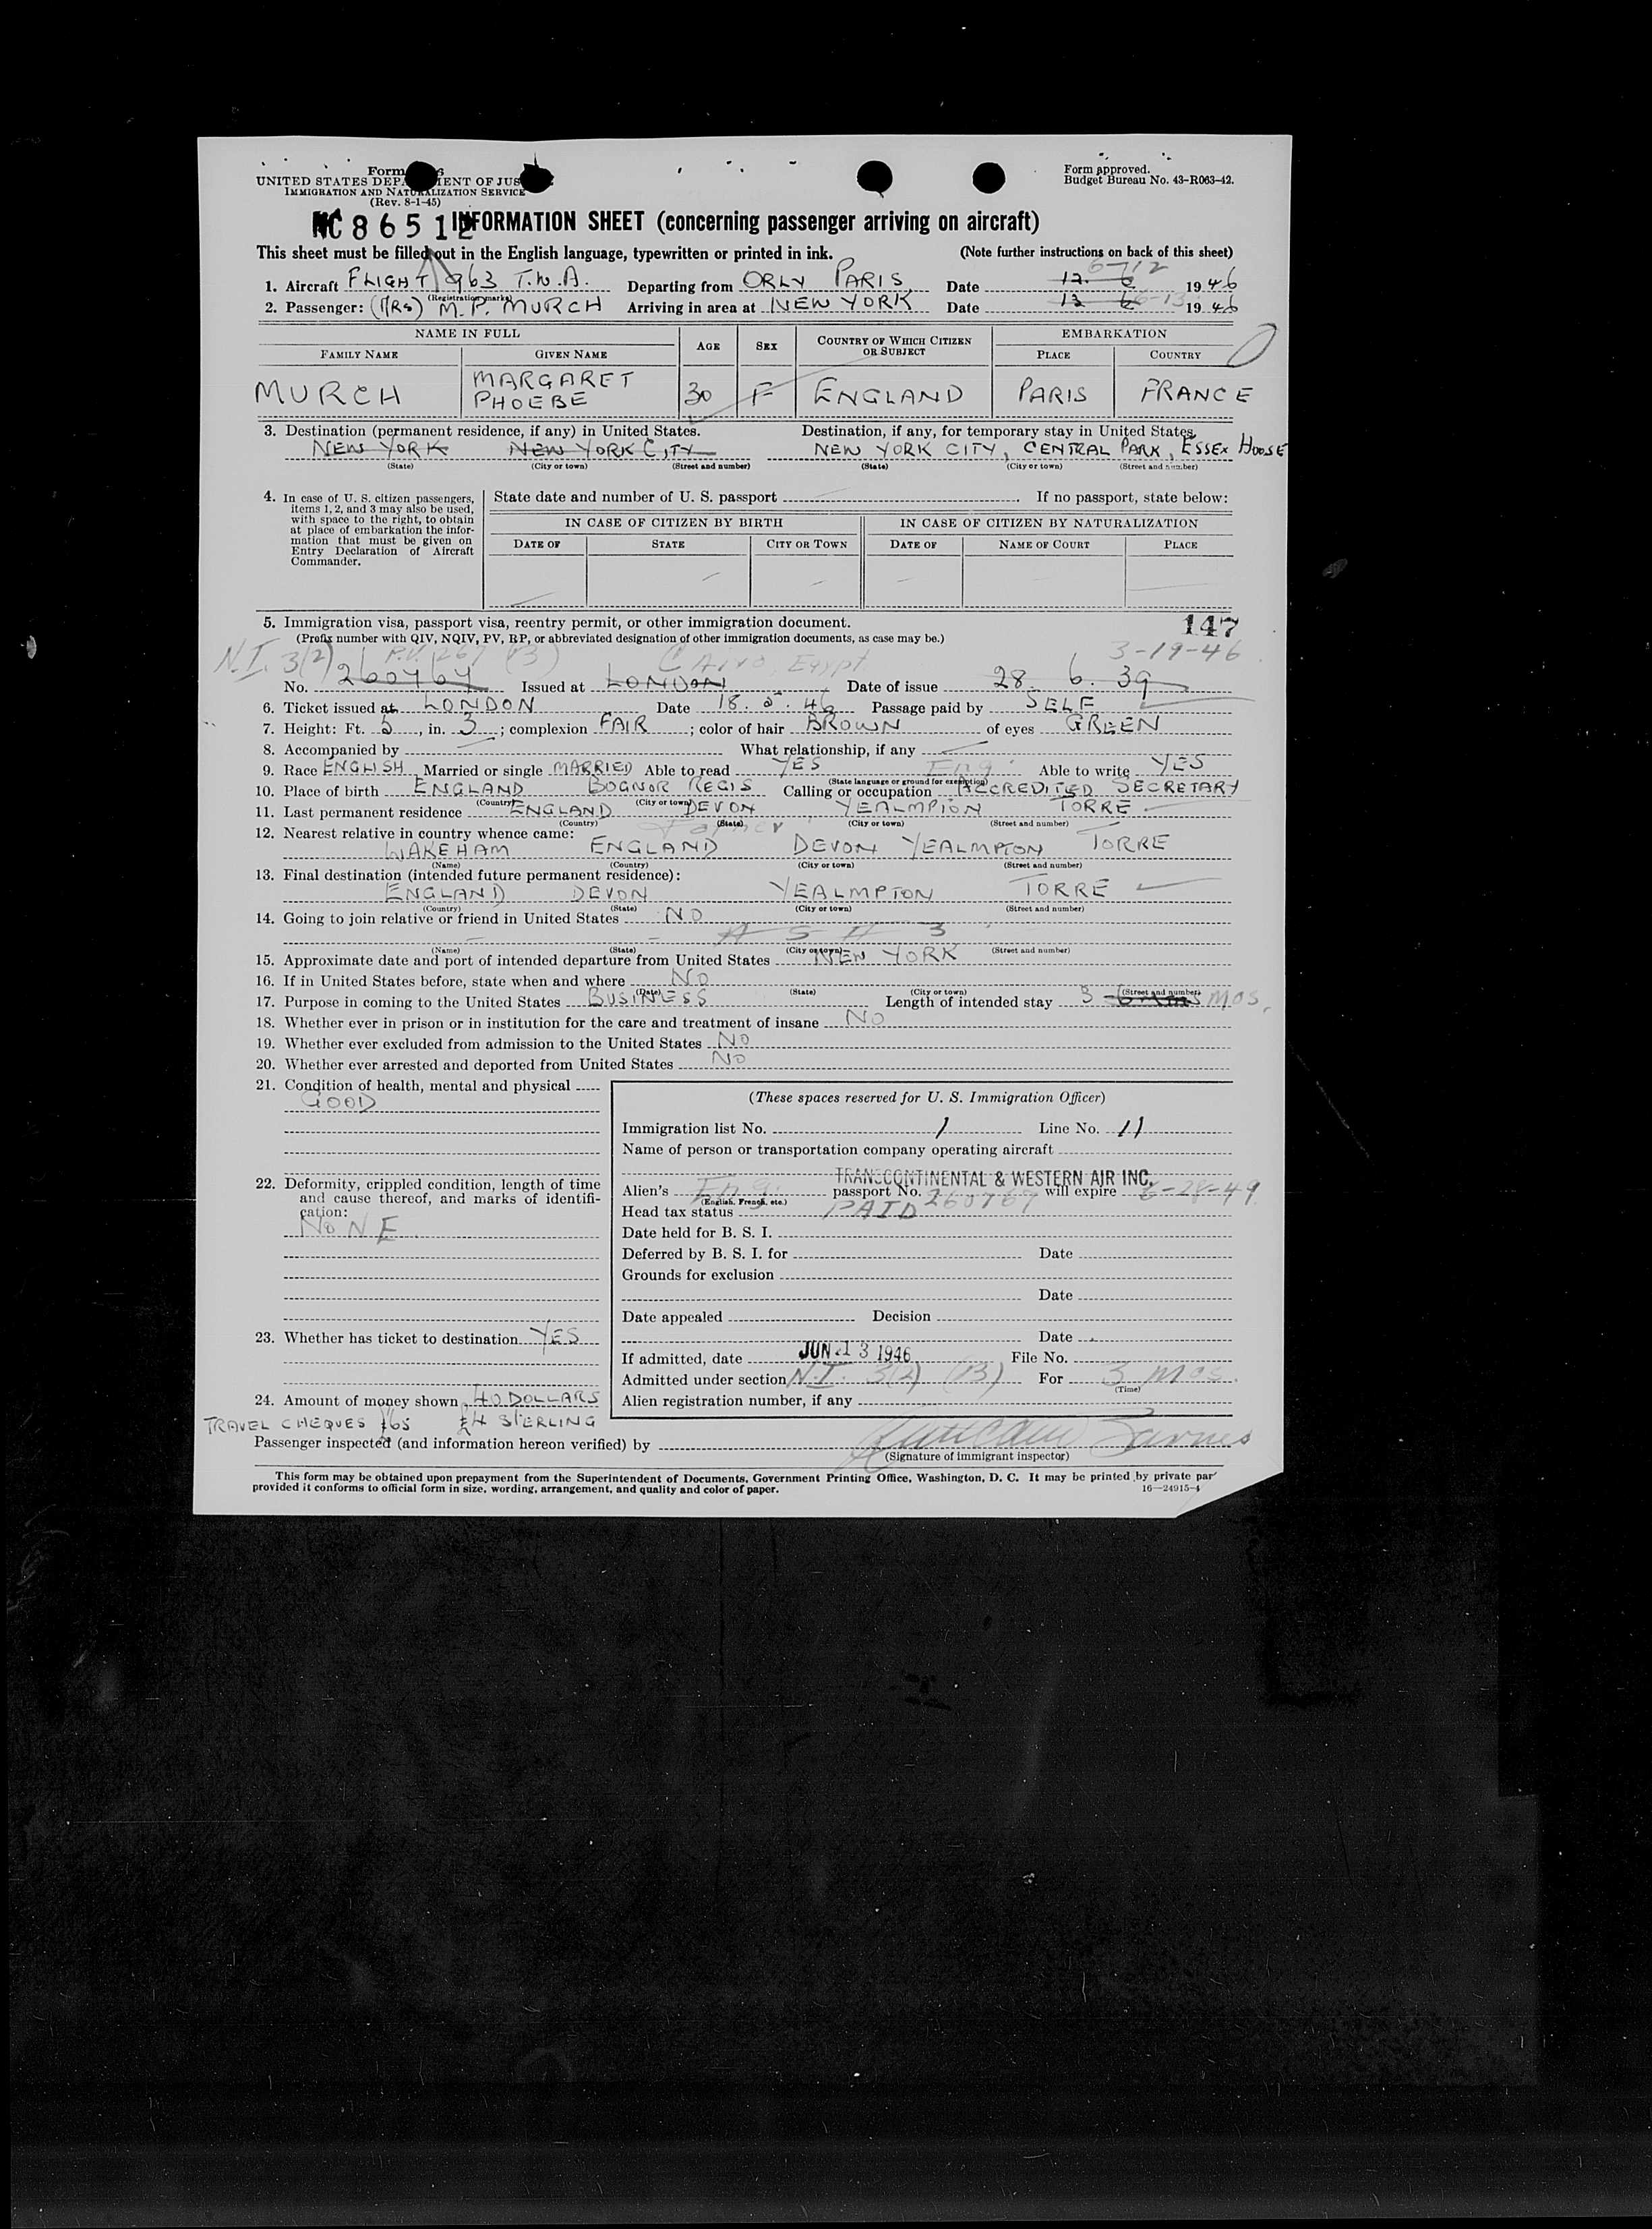 Form
UNITED STATES DEP IENT OF JUS
IMMIGRATION AND NATURALIZATION SERVICE
(Rev. 8-1-45)
Form approved.
Budget Bureau No. 43-R063-42.
NC 86512 INFORMATION SHEET (concerning passenger arriving on aircraft)
This sheet must be filled out in the English language, typewritten or printed in ink. (Note further instructions on back of this sheet)
6-12
1. Aircraft FLIGHT 963 T.W.A. Departing from ORLY PARIS Date 12. 6 1946
(Registration marks)
2. Passenger: (MRS) M.P. MURCH Arriving in area at NEW YORK Date 13 6 6-13 1946
NAME IN FULL AGE SEX COUNTRY OF WHICH CITIZEN OR SUBJECT EMBARKATION
FAMILY NAME GIVEN NAME PLACE COUNTRY
MURCH MARGARET PHOEBE 30 F ENGLAND PARIS FRANCE
3. Destination (permanent residence, if any) in United States. Destination, if any, for temporary stay in United States.
NEW YORK NEW YORK CITY NEW YORK CITY, CENTRAL PARK, ESSEX HOUSE
(State) (City or town) (Street and number) (State) (City or town) (Street and number)
4. In case of U. S. citizen passengers, items 1, 2, and 3 may also be used, with space to the right, to obtain at place of embarkation the information that must be given on Entry Declaration of Aircraft Commander.
State date and number of U. S. passport If no passport, state below:
IN CASE OF CITIZEN BY BIRTH IN CASE OF CITIZEN BY NATURALIZATION
DATE OF STATE CITY OR TOWN DATE OF NAME OF COURT PLACE
5. Immigration visa, passport visa, reentry permit, or other immigration document. 147
(Prefix number with QIV, NQIV, PV, RP, or abbreviated designation of other immigration documents, as case may be.)
N.I. 3(2) P.V. 267 (B) Cairo, Egypt 3-19-46
No. 260769 Issued at LONDON Date of issue 28. 6. 39
6. Ticket issued at LONDON Date 18. 5. 46 Passage paid by SELF
7. Height: Ft. 5, in. 3; complexion FAIR; color of hair BROWN of eyes GREEN
8. Accompanied by What relationship, if any
9. Race ENGLISH Married or single MARRIED Able to read YES Eng. Able to write YES
(State language or ground for exemption)
10. Place of birth ENGLAND BOGNOR REGIS Calling or occupation ACCREDITED SECRETARY
(Country) (City or town)
11. Last permanent residence ENGLAND DEVON YEALMPTON TORRE
(Country) (State) (City or town) (Street and number)
12. Nearest relative in country whence came:
WAKEHAM ENGLAND DEVON YEALMPTON TORRE
(Name) (Country) (City or town) (Street and number)
13. Final destination (intended future permanent residence):
ENGLAND DEVON YEALMPTON TORRE
(Country) (State) (City or town) (Street and number)
14. Going to join relative or friend in United States NO
(Name) (State) (City or town) (Street and number)
15. Approximate date and port of intended departure from United States NEW YORK
16. If in United States before, state when and where NO
(Date) (State) (City or town) (Street and number)
17. Purpose in coming to the United States BUSINESS Length of intended stay 3 MOS.
18. Whether ever in prison or in institution for the care and treatment of insane NO
19. Whether ever excluded from admission to the United States NO
20. Whether ever arrested and deported from United States NO
21. Condition of health, mental and physical
GOOD
22. Deformity, crippled condition, length of time and cause thereof, and marks of identification:
NONE
23. Whether has ticket to destination YES
24. Amount of money shown 40 DOLLARS
TRAVEL CHEQUES £65 £4 STERLING
(These spaces reserved for U. S. Immigration Officer)
Immigration list No. 1 Line No. 11
Name of person or transportation company operating aircraft
TRANSCONTINENTAL & WESTERN AIR INC.
Alien's Eng. passport No. 260769 will expire 6-28-49
(English, French, etc.)
Head tax status PAID
Date held for B. S. I.
Deferred by B. S. I. for Date
Grounds for exclusion
Date
Date appealed Decision
Date
If admitted, date JUN 13 1946 File No.
Admitted under section N.I. 3(2) (B) For 3 Mos.
(Time)
Alien registration number, if any
Passenger inspected (and information hereon verified) by
(Signature of immigrant inspector)
This form may be obtained upon prepayment from the Superintendent of Documents, Government Printing Office, Washington, D. C. It may be printed by private par
provided it conforms to official form in size, wording, arrangement, and quality and color of paper. 16—24915-4